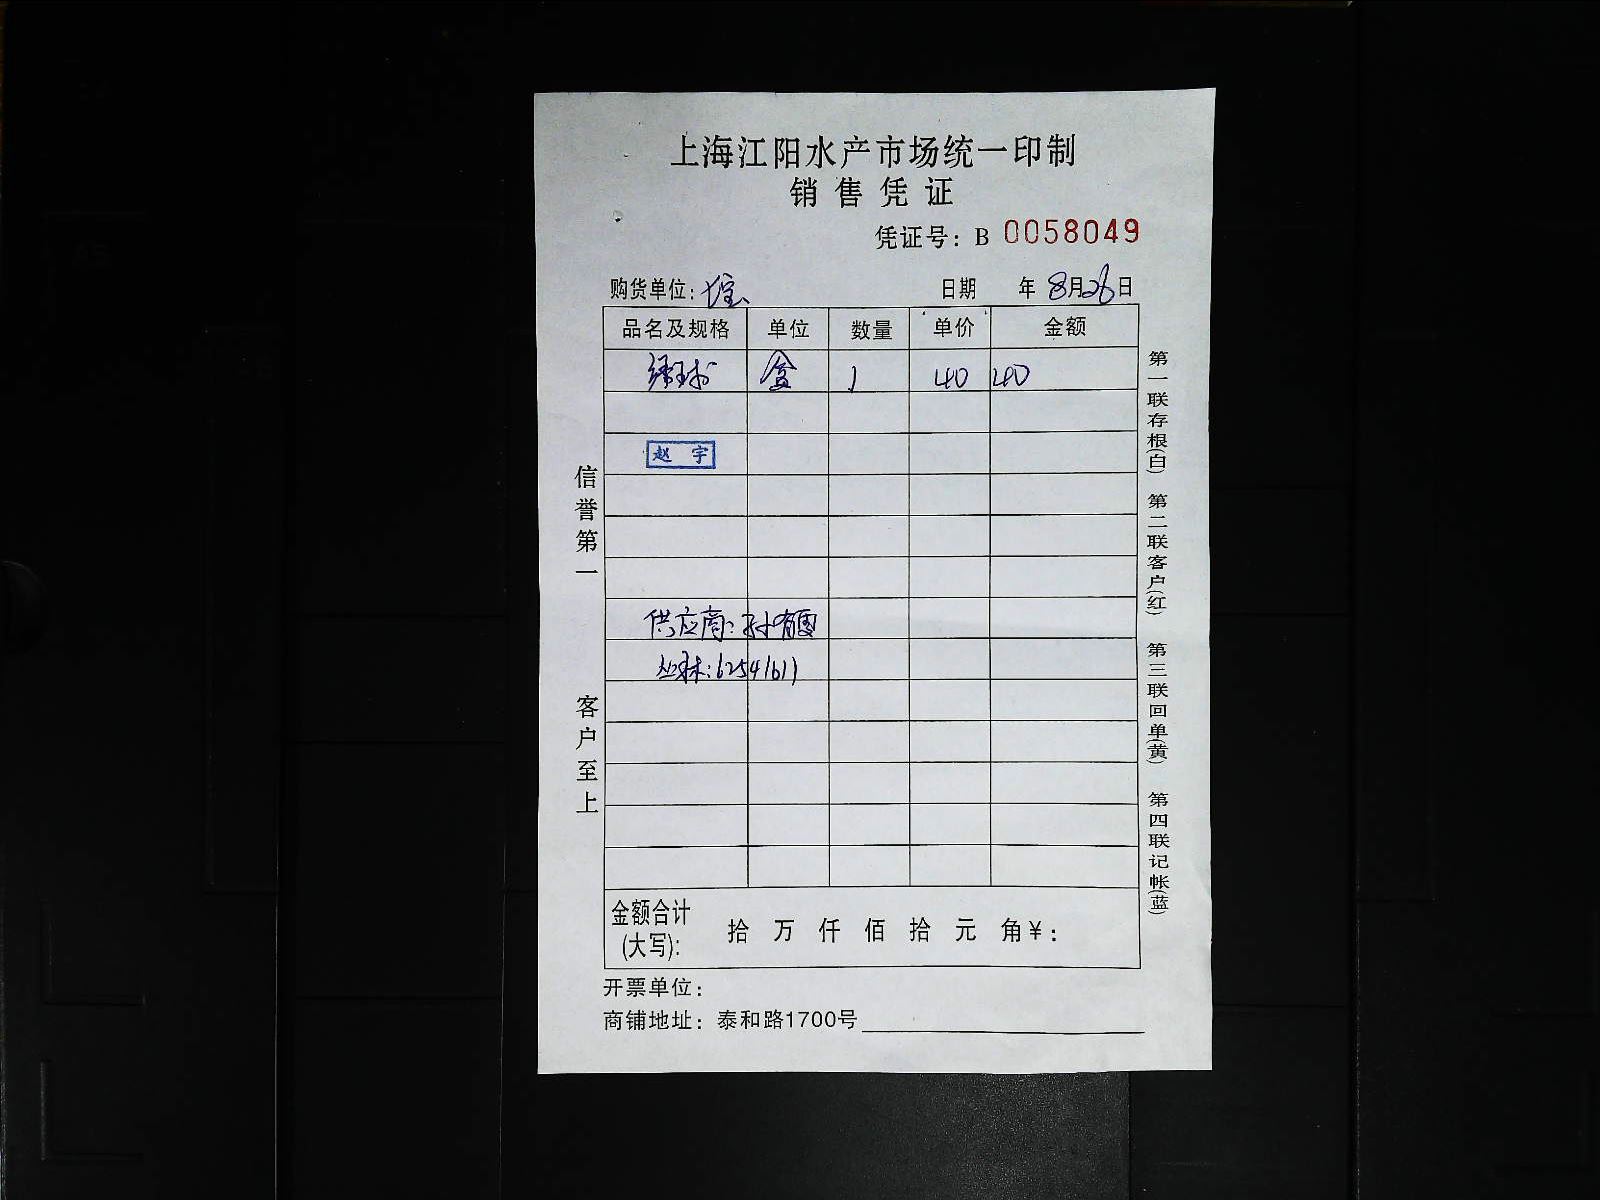 上海江阳水产市场统一印制
销售凭证
凭证号：B 0058049
购货单位： 日期 年8月26日
品名及规格 单位 数量 单价 金额
盒 1 40 40
赵宇
供应商：孙有国
62541611
金额合计(大写)： 拾 万 仟 佰 拾 元 角￥：
开票单位：
商铺地址：泰和路1700号
信誉第一 客户至上
第一联存根(白) 第二联客户(红) 第三联回单(黄) 第四联记帐(蓝)